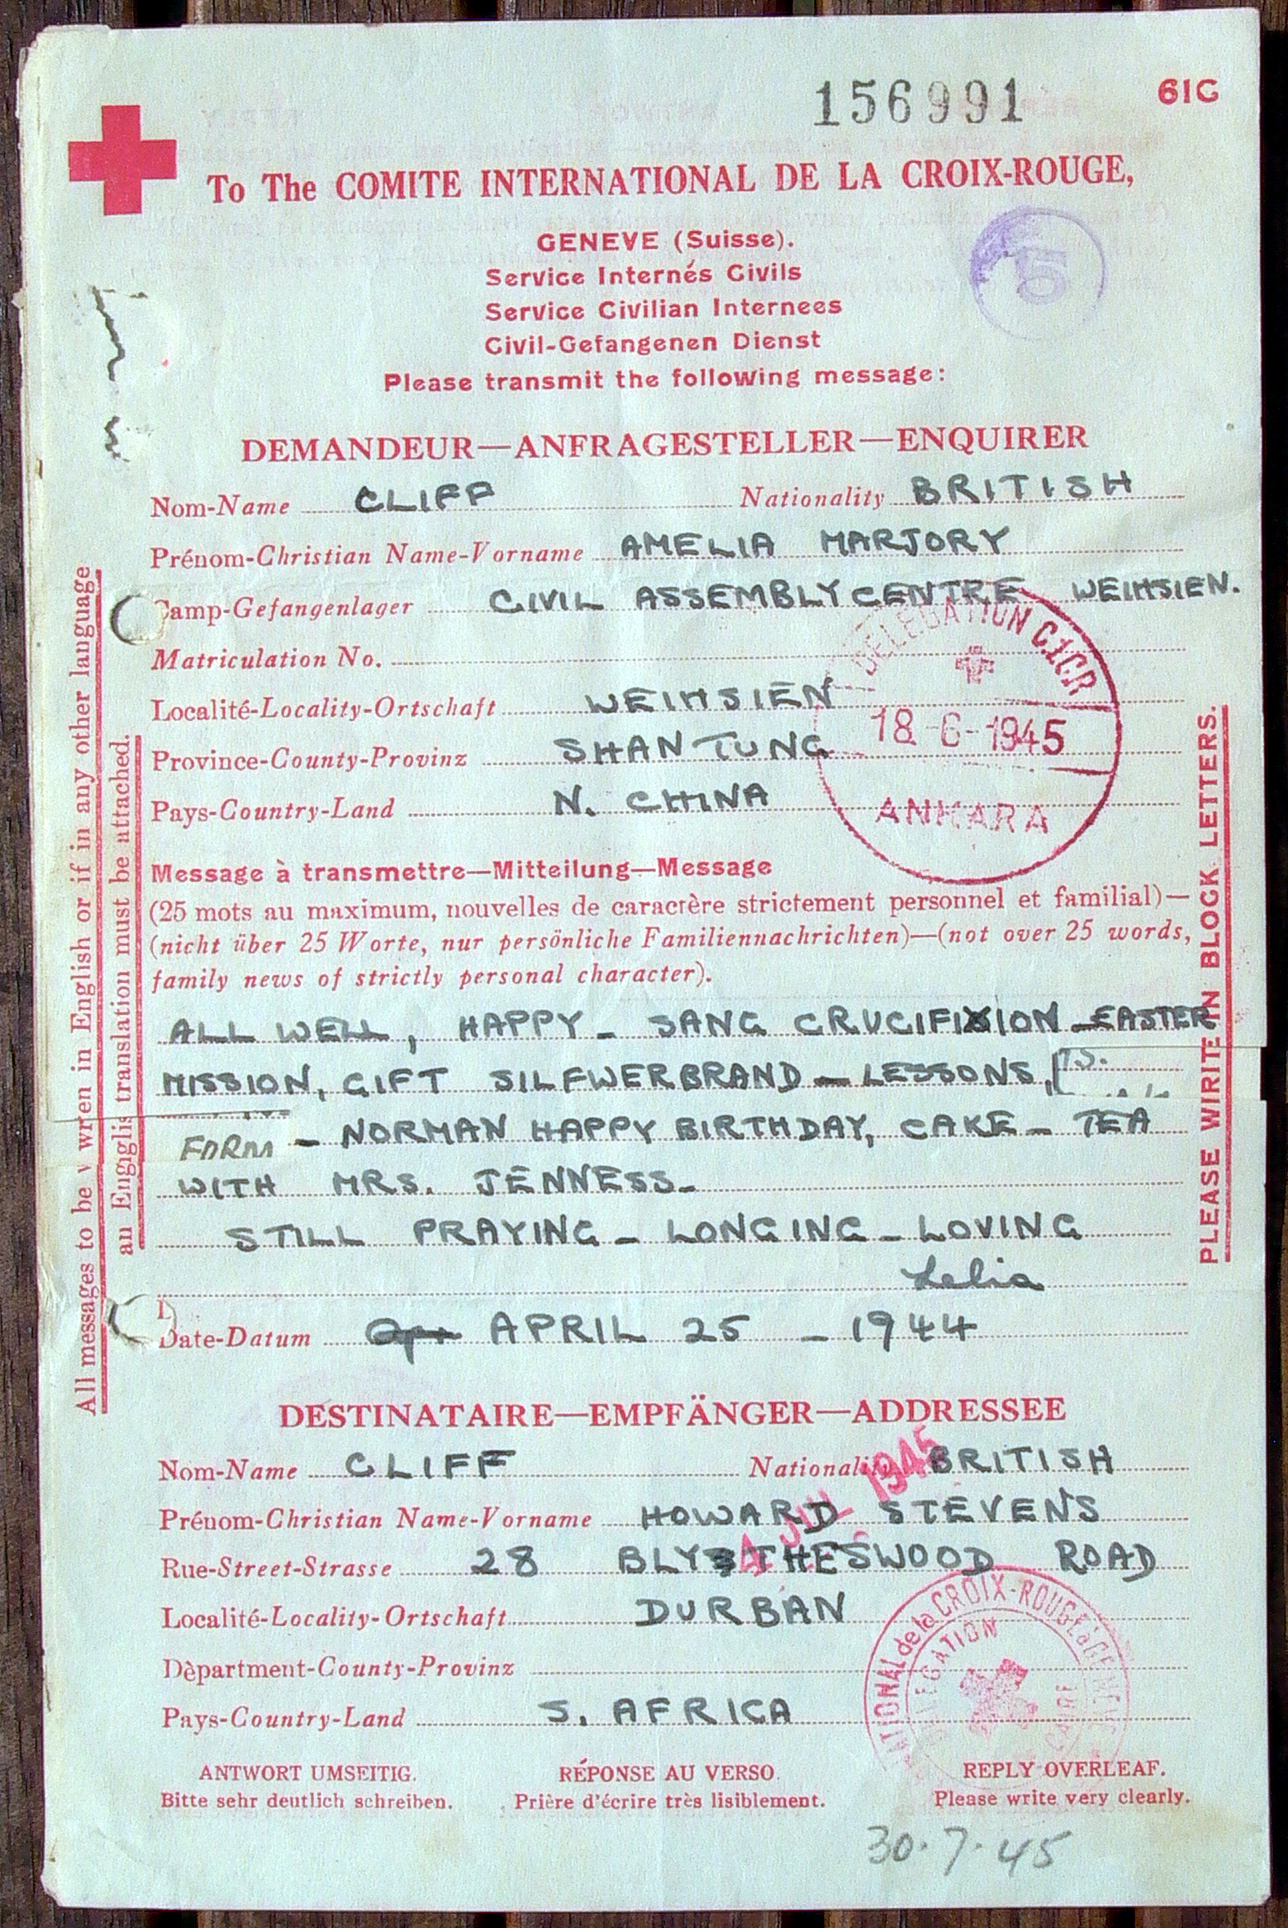 156991
61G
To The COMITE INTERNATIONAL DE LA CROIX-ROUGE,
GENEVE (Suisse).
5
Service Internés Civils
Service Civilian Internees
Civil-Gefangenen Dienst
Please transmit the following message:
DEMANDEUR—ANFRAGESTELLER—ENQUIRER
Nom-Name CLIFF Nationality BRITISH
Prénom-Christian Name-Vorname AMELIA MARJORY
Camp-Gefangenlager CIVIL ASSEMBLY CENTRE WEIHSIEN.
Matriculation No.
Localité-Locality-Ortschaft WEIHSIEN
Province-County-Provinz SHANTUNG
Pays-Country-Land N. CHINA
DELEGATION CICR
18-6-1945
ANKARA
Message à transmettre—Mitteilung—Message
(25 mots au maximum, nouvelles de caractère strictement personnel et familial)—
(nicht über 25 Worte, nur persönliche Familiennachrichten)—(not over 25 words,
family news of strictly personal character).
ALL WELL, HAPPY – SANG CRUCIFIXION – EASTER
MISSION, GIFT SILFWERBRAND – LESSONS,
FORM – NORMAN HAPPY BIRTHDAY, CAKE – TEA
WITH MRS. JENNESS –
STILL PRAYING – LONGING – LOVING
Lelia
Date-Datum APRIL 25 – 1944
All messages to be wren in English or if in any other language
an Englis translation must be attached.
PLEASE WIRITE IN BLOCK LETTERS.
DESTINATAIRE—EMPFÄNGER—ADDRESSEE
Nom-Name CLIFF Nationality BRITISH
Prénom-Christian Name-Vorname HOWARD STEVENS
Rue-Street-Strasse 28 BLYTHESWOOD ROAD
4 JUL 1945
Localité-Locality-Ortschaft DURBAN
Dèpartment-County-Provinz
Pays-Country-Land S. AFRICA
de la CROIX-ROUGE
DELEGATION
ANTWORT UMSEITIG. RÉPONSE AU VERSO. REPLY OVERLEAF.
Bitte sehr deutlich schreiben. Prière d'écrire très lisiblement. Please write very clearly.
30.7.45